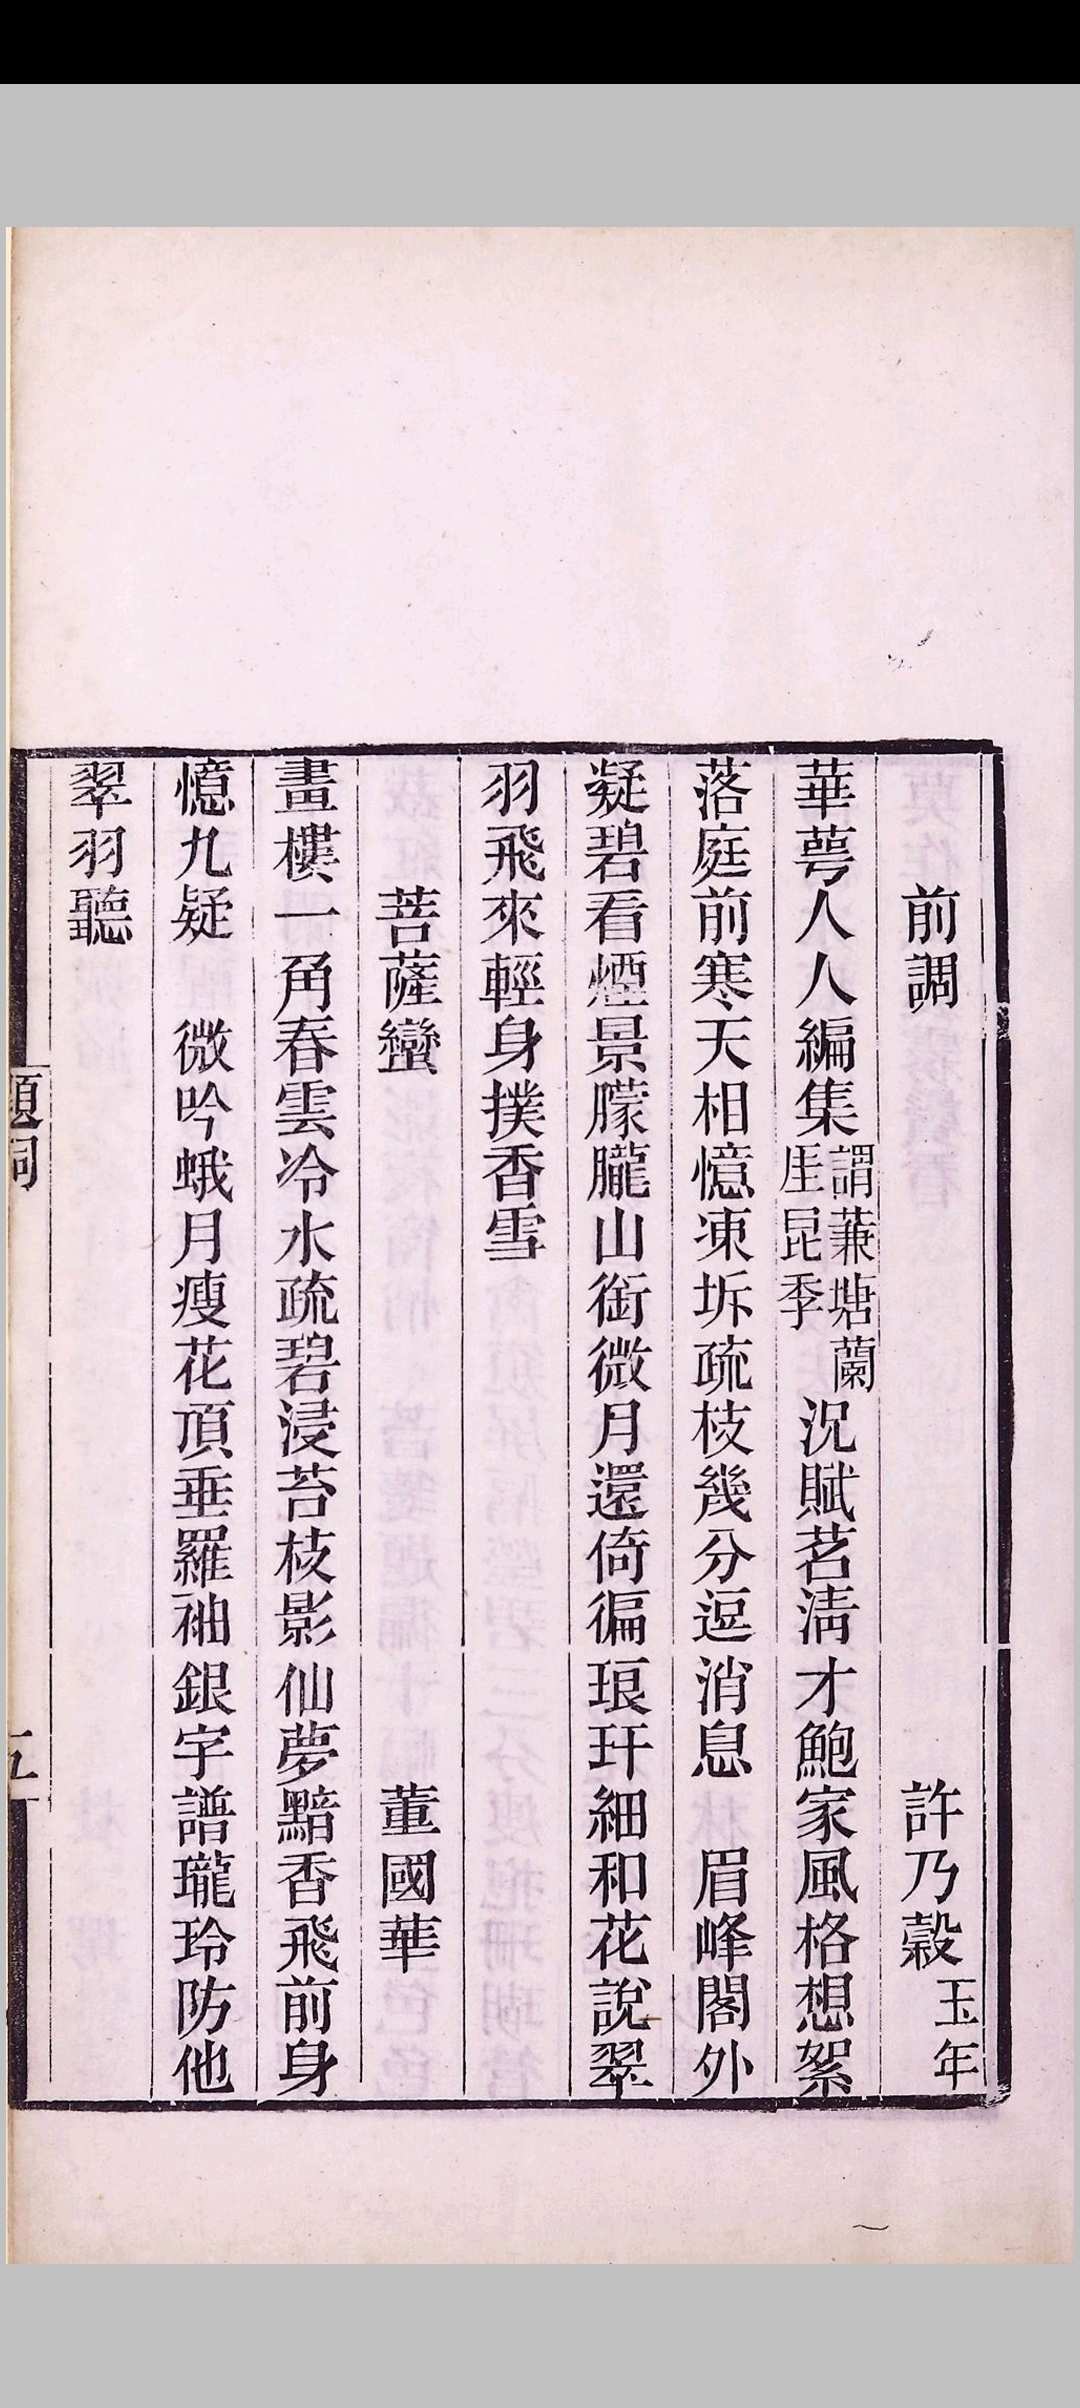 前調　許乃穀玉年
華萼人人編集謂蒹塘蘭厓昆季況賦茗淸才鮑家風格想絮
落庭前寒天相憶凍坼疏枝幾分逗消息　眉峰閣外
凝碧看煙景朦朧山銜微月還倚徧琅玕細和花說翠
羽飛來輕身撲香雪
菩薩蠻　董國華
畫樓一角春雲冷水疏碧浸苔枝影仙夢黯香飛前身
憶九疑　微吟蛾月瘦花頂垂羅袖銀字譜瓏玲防他
翠羽聽
題詞
五